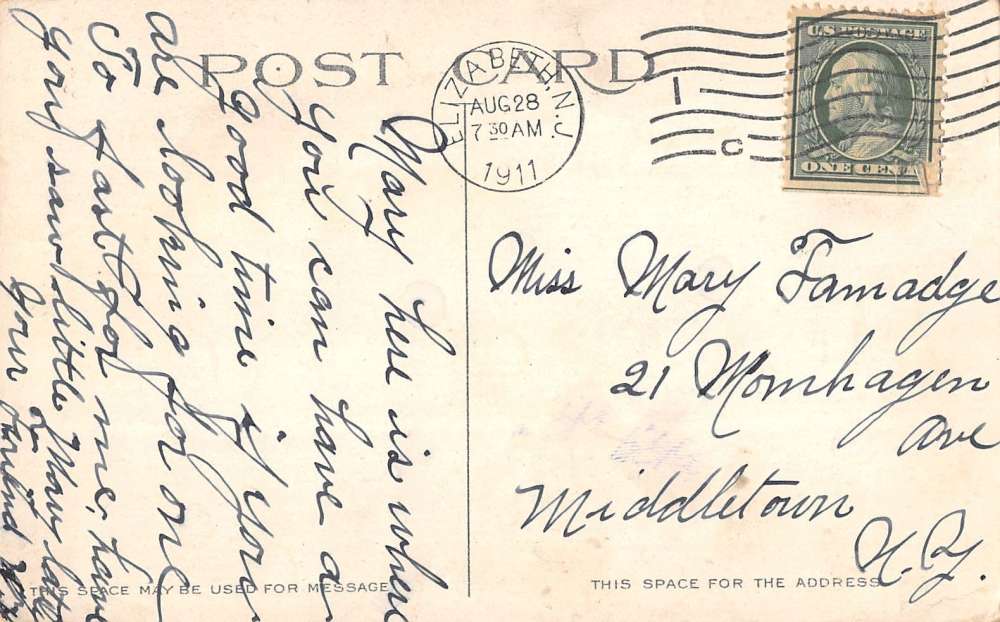 POST CARD
ELIZABETH, N.J.
AUG 28
7 30 AM
1911
1
C
U.S. POSTAGE
ONE CENT
Mary here is where
you can have a
good time if you
are looking for one
To fast for me, have
you saw little lately
Your friend
Miss Mary Tamadge
21 Monhagen
Ave
Middletown
N.Y.
THIS SPACE MAY BE USED FOR MESSAGE
THIS SPACE FOR THE ADDRESS